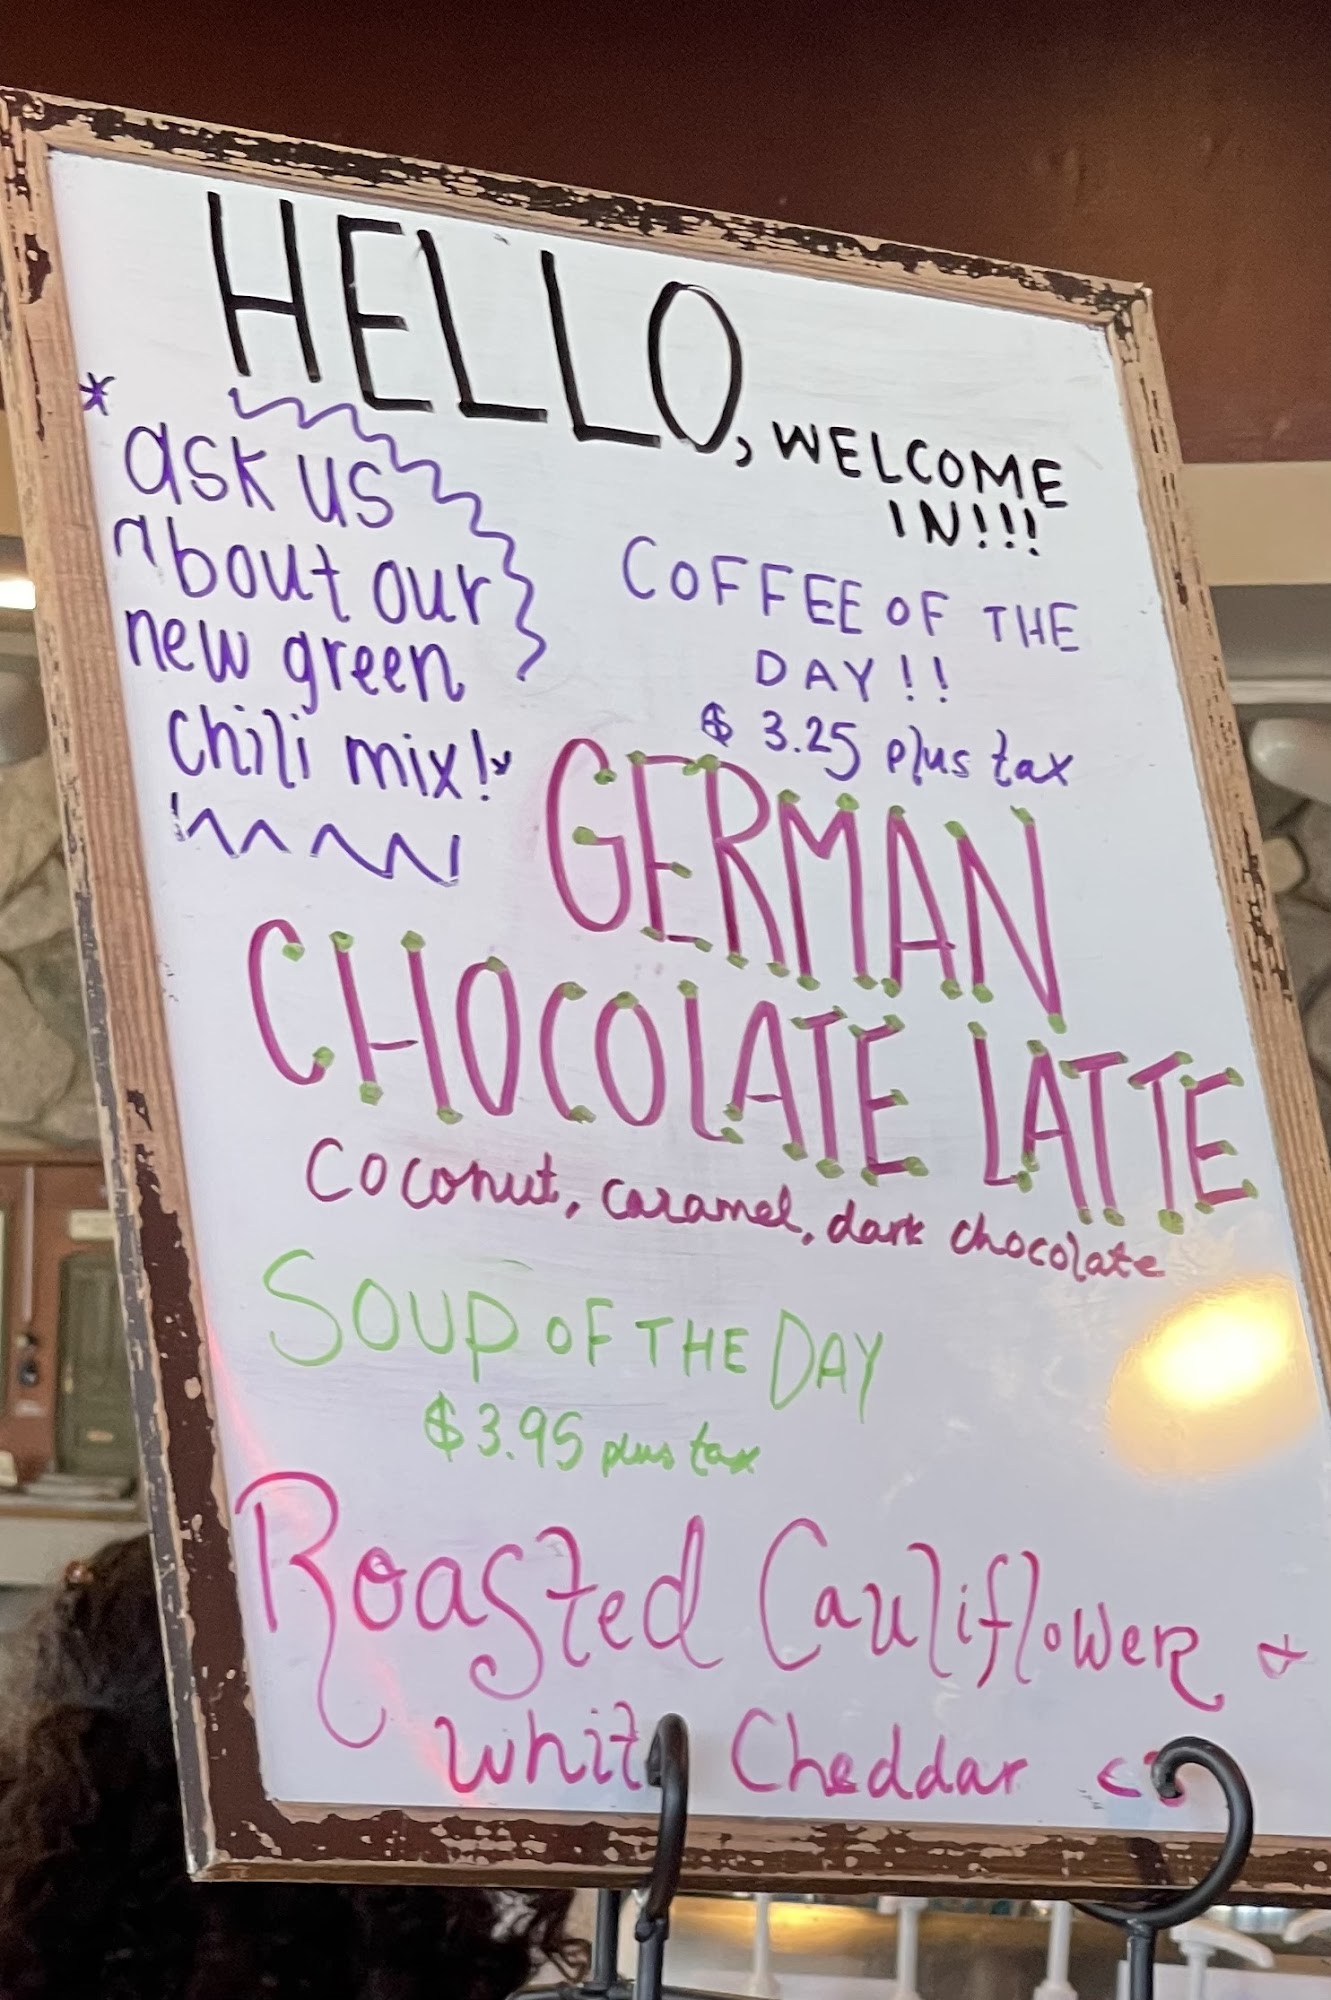 HELLO, WELCOME
IN!!!
* ask us
'bout our
new green
chili mix!*
COFFEE OF THE
DAY!!
$3.25 plus tax
GERMAN
CHOCOLATE LATTE
Coconut, caramel, dark chocolate
SOUP OF THE DAY
$3.95 plus tax
Roasted Cauliflower +
White Cheddar <3